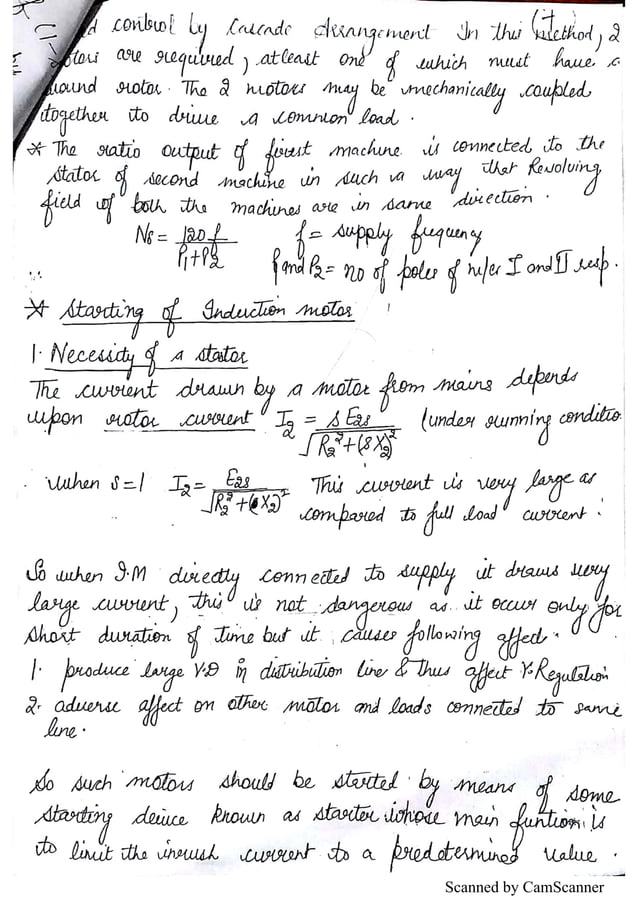 control by Cascade Arrangement In this Method, 2
are required, atleast one of which must have a
rotor. The 2 motors may be mechanically coupled
together to drive a common load.
* The ratio output of first machine is connected to the
stator of second machine in such a way that Revolving
field of both the machines are in same direction.
Ns = 120f / P1+P2 f = supply frequency
P1 and P2 = no of poles of m/cs I and II resp.
* Starting of Induction motor
1. Necessity of a stator
The current drawn by a motor from mains depends
upon rotor current I2 = sE2s / √R2²+(sX2)² (under running conditio
when s=1 I2 = E2s / √R2²+(X2)² This current is very large as
compared to full load current.
So when I.M directly connected to supply it draws very
large current, this is not dangerous as it occur only for
short duration of time but it causes following affect.
1. produce large V.D in distribution line & thus affect V.Regulation
2. adverse affect on other motor and loads connected to same
line.
So such motors should be started by means of some
starting deivce known as starter whose main funtion is
to limit the inrush current to a predetermined value.
Scanned by CamScanner